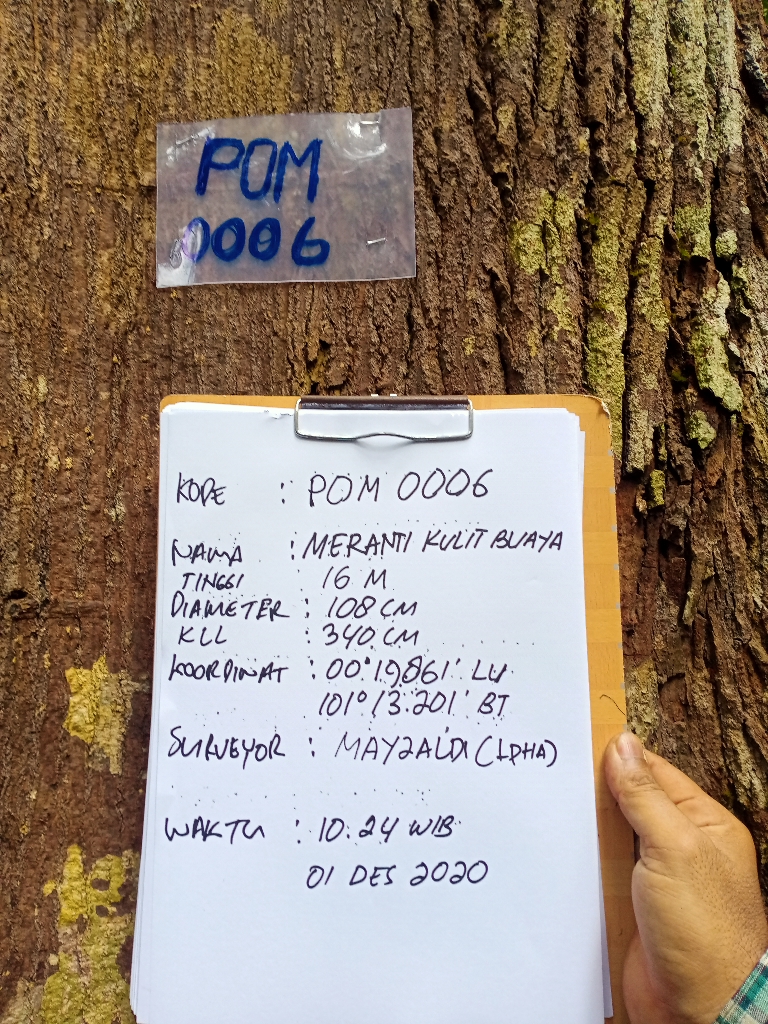 POM
0006
KODE : POM 0006
NAMA : MERANTI KULIT BUAYA
TINGGI 16 M
DIAMETER : 108 CM
KLL : 340 CM
KOORDINAT : 00°19.861' LU
101°13.201' BT
SURVEYOR : MAYZALDI (LPHA)
WAKTU : 10.24 WIB
01 DES 2020